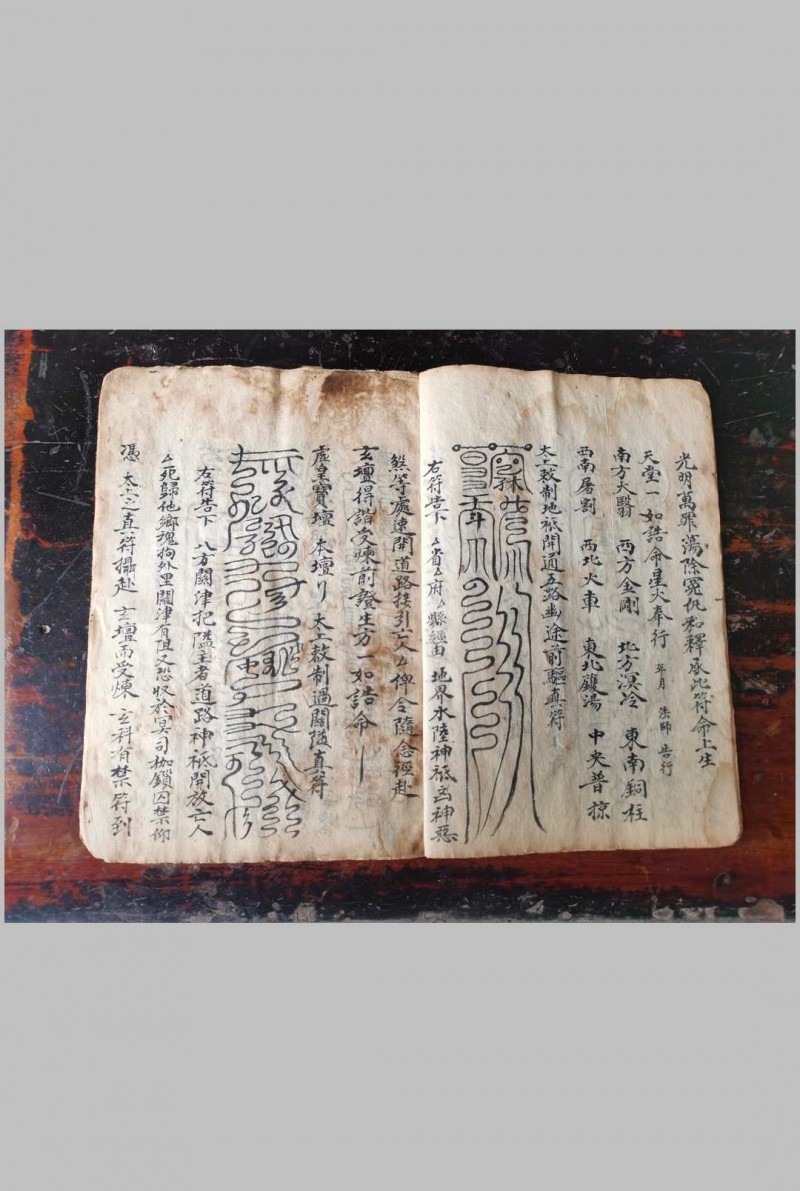 光明萬罪蕩除冤仇和釋承此符命上生
天堂一如誥命星火奉行 年月 法師 告行
南方大翳 西方金剛 北方溟冷 東南銅柱
西南屠割 西北火車 東北鑊湯 中央普掠
太上敕制地祇開通五路幽途前驅真符
右符告下 ㄙ省ㄙ府ㄙ縣經由 地界水陸神祇凶神惡
煞等處速開道路接引亡人ㄙ俾令隨念徑赴
玄壇得諧受煉前證生方一如誥命
虛皇寶壇 本壇 太上敕制過關隘真符
右符告下 八方關津把隘主者道路神祇開放亡人
ㄙ死歸他鄉魂拘外里關津有阻又恐收於冥司枷鎖囚禁仰
憑 太上之真符攝赴 玄壇而受煉 玄科有禁符到